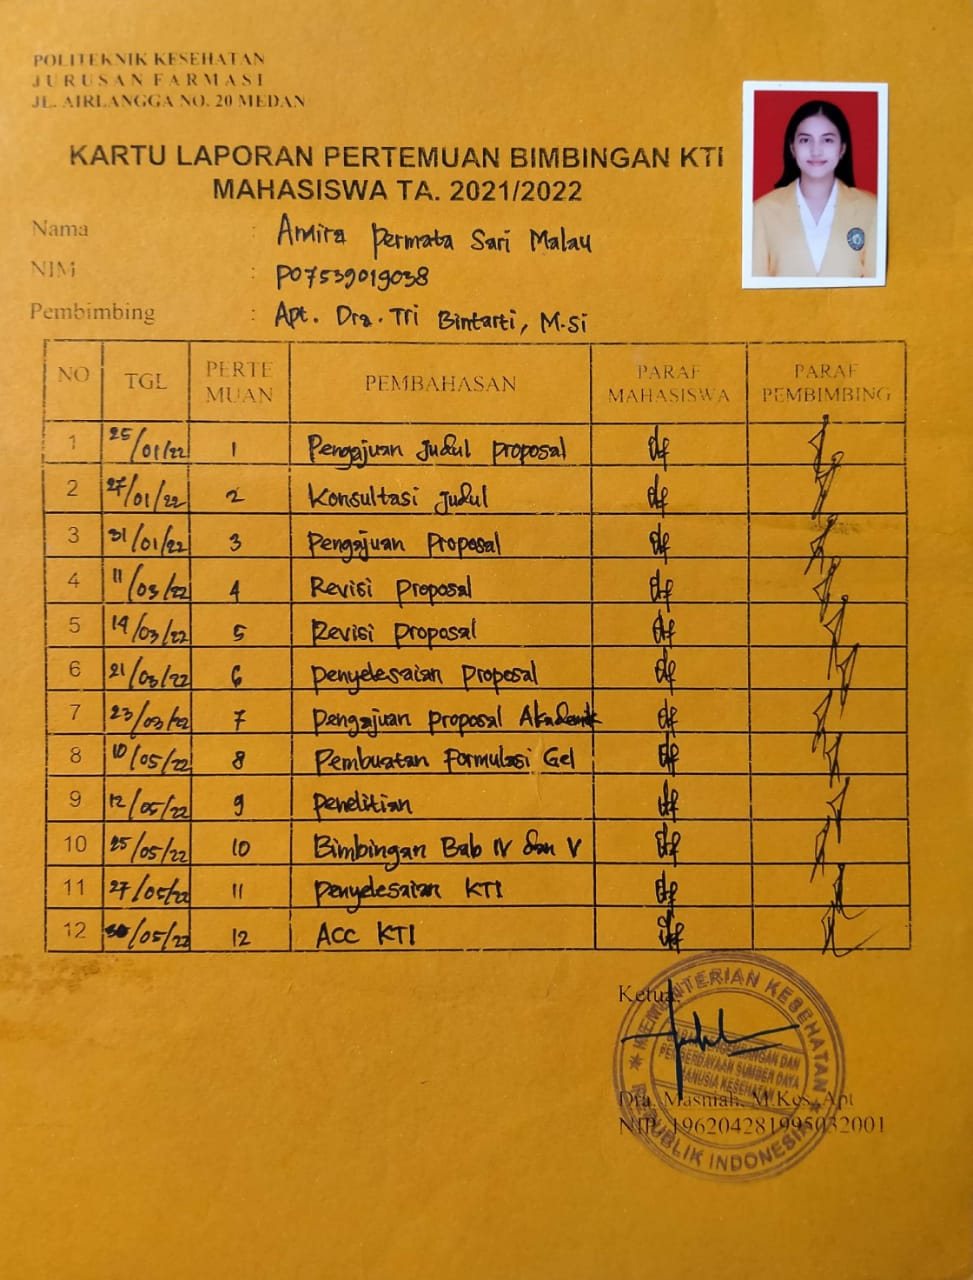 POLITEKNIK KESEHATAN
JURUSAN FARMASI
JL. AIRLANGGA NO. 20 MEDAN
KARTU LAPORAN PERTEMUAN BIMBINGAN KTI
MAHASISWA TA. 2021/2022
Nama : Amira Permata Sari Malau
NIM : P07539019038
Pembimbing : Apt. Dra. Tri Bintarti, M.Si
NO TGL PERTE MUAN PEMBAHASAN PARAF MAHASISWA PARAF PEMBIMBING
1 25/01/22 1 Pengajuan Judul proposal
2 27/01/22 2 Konsultasi Judul
3 31/01/22 3 Pengajuan Proposal
4 11/03/22 4 Revisi Proposal
5 14/03/22 5 Revisi Proposal
6 21/03/22 6 Penyelesaian Proposal
7 23/03/22 7 Pengajuan proposal Akademik
8 10/05/22 8 Pembuatan Formulasi Gel
9 12/05/22 9 Penelitian
10 25/05/22 10 Bimbingan Bab IV dan V
11 27/05/22 11 Penyelesaian KTI
12 30/05/22 12 ACC KTI
Ketua,
KEMENTERIAN KESEHATAN
PENGEMBANGAN DAN
PEMBERDAYAAN SUMBER DAYA
MANUSIA KESEHATAN
REPUBLIK INDONESIA
Dra. Masniah, M.Kes, Apt
NIP. 196204281995032001